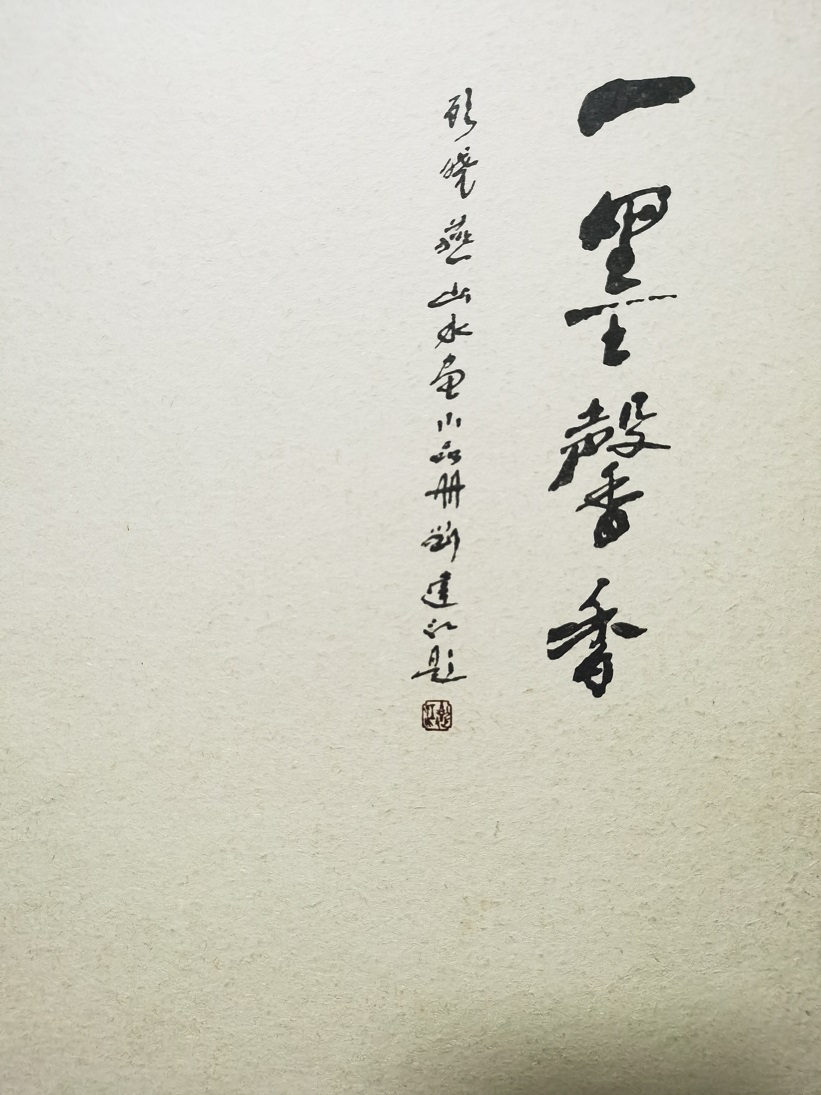 一墨馨香
顾晓燕山水画小品册刘建江题